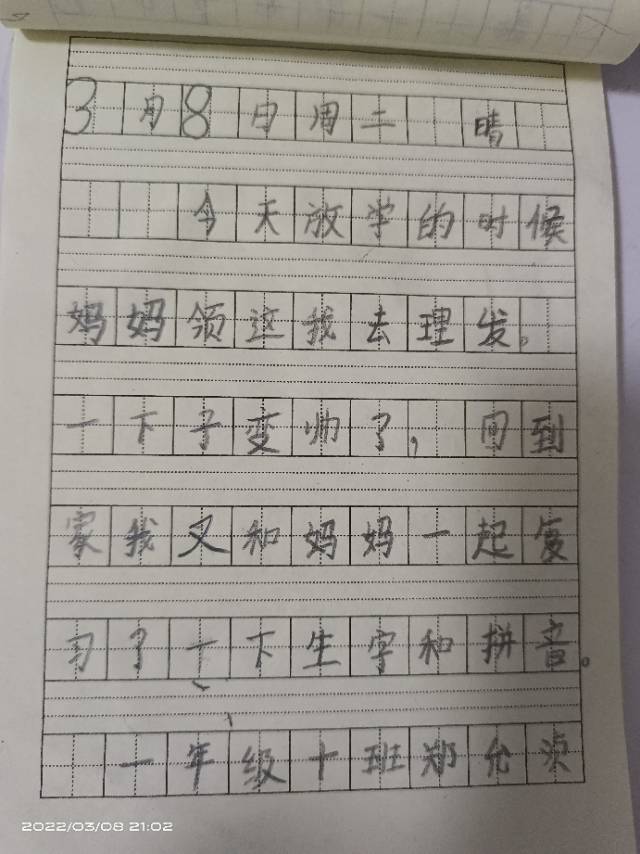 3月8日周二 晴
今天放学的时候
妈妈领这我去理发。
一下子变帅了，回到
家我又和妈妈一起复
习了一下生字和拼音。
一年级十班郑允
2022/03/08 21:02